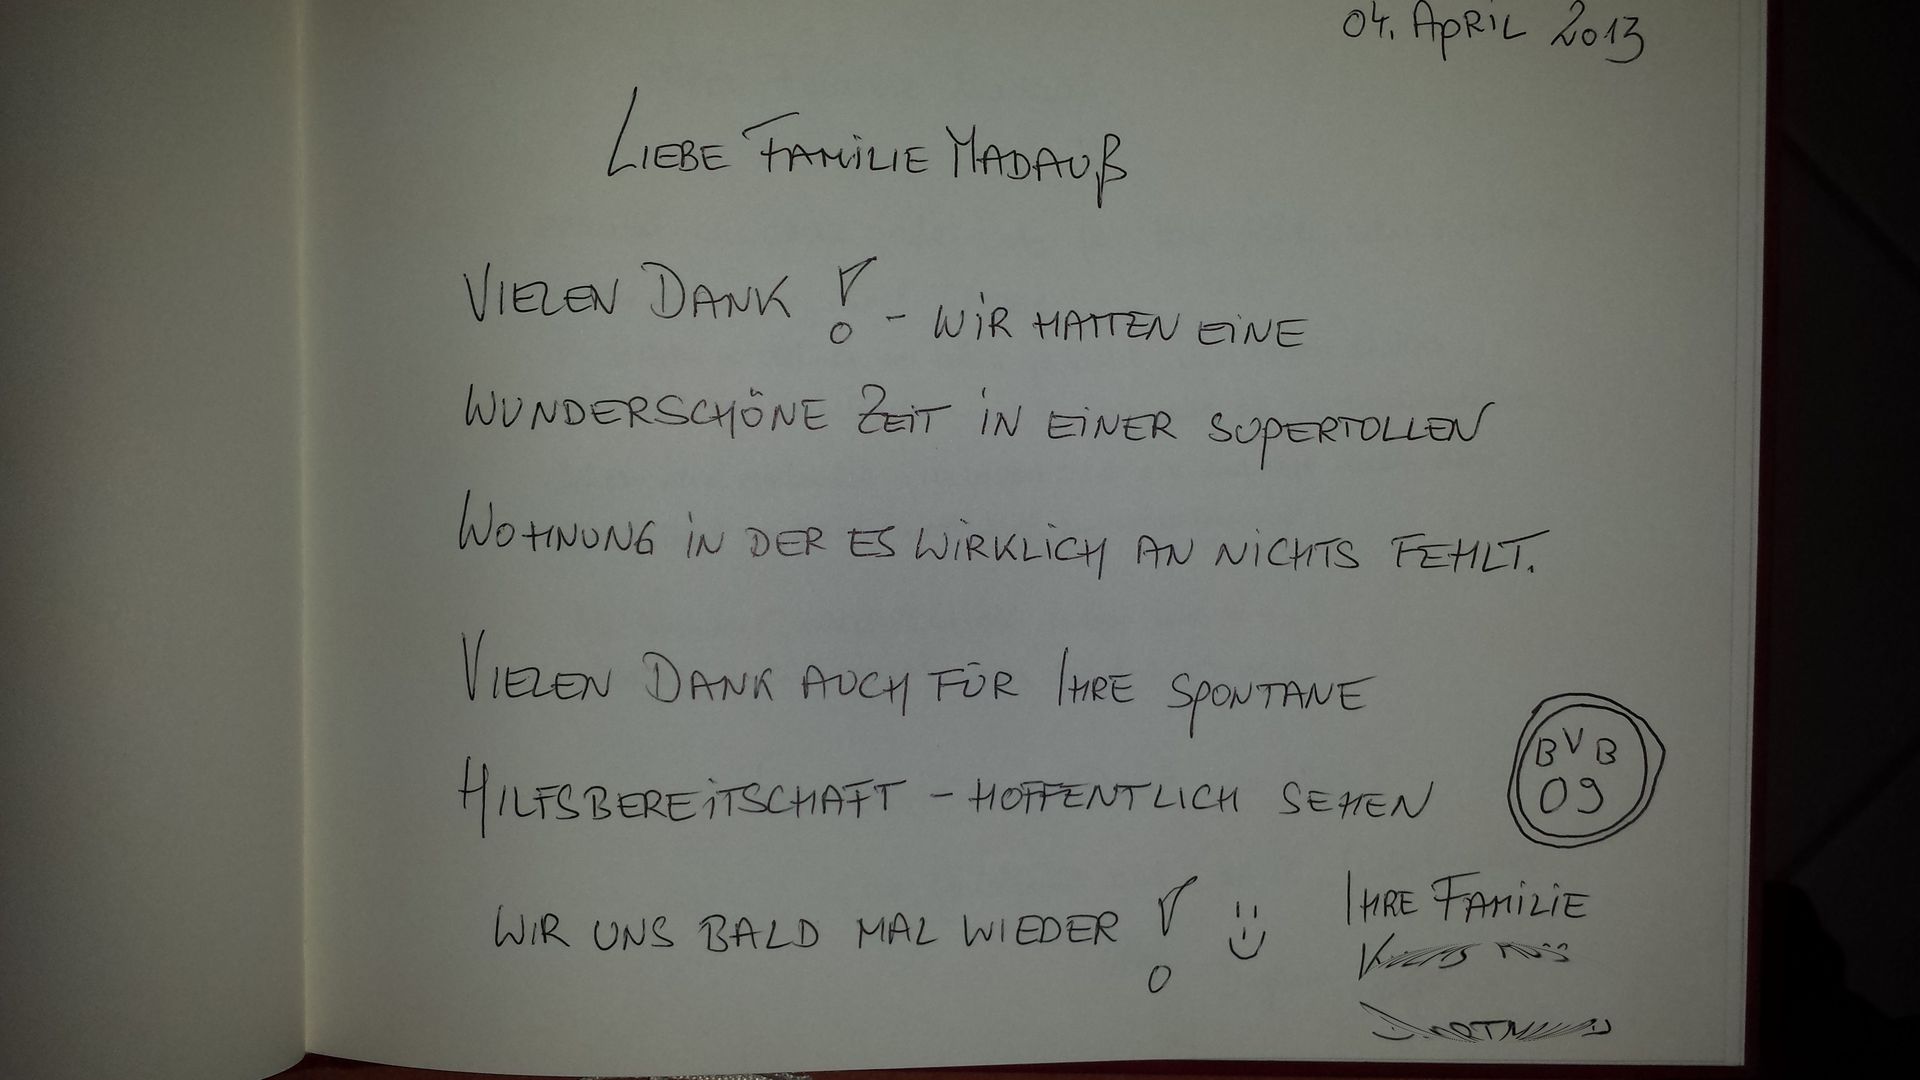 04. April 2013
Liebe Familie Madauß
Vielen Dank ! - wir hatten eine
wunderschöne Zeit in einer supertollen
Wohnung in der es wirklich an nichts fehlt.
Vielen Dank auch für Ihre spontane
Hilfsbereitschaft - hoffentlich sehen
wir uns bald mal wieder !
BVB
09
Ihre Familie